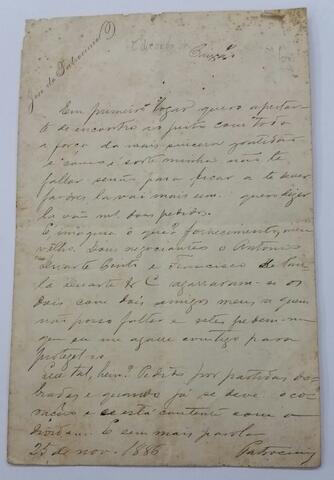 José do Patrocinio
Em primeiro logar quero apertar-
te de encontro ao peito com toda
a força da mais sincera gratidão
e como é sorte minha não te
fallar senão para ficar a te dever
favores la vai mais um. quero dizer
la vão mais dous pedidos.
E imagina o que? fornecimento, meu
velho. Dous negociantes o Antonio
Duarte e Francisco de Pau-
la Duarte & C agarraram-se os
dois com dois amigos meus a quem
não posso faltar e estes pedem-me
que eu me agarre comtigo para
protegel-os.
Que tal, hein? Pedidos por partidas do-
bradas e quando já se deve o co-
ração e se está contente com a
divida. E sem mais parola
25 de nov. 1886
Patrocinio